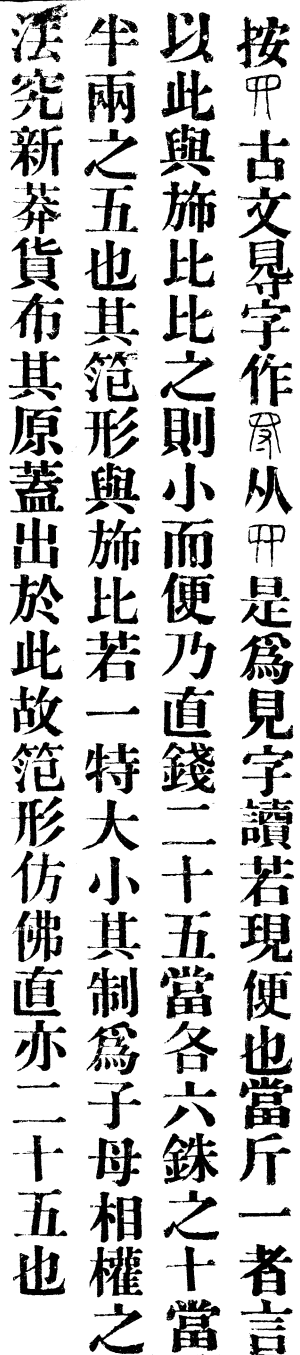 按古文䙷字作从是爲見字讀若現便也當斤一者言
以此與斾比比之則小而便乃直錢二十五當各六銖之十當
半兩之五也其笵形與斾比若一特大小其制爲子母相權之
法究新莽貨布其原蓋出於此故笵形仿佛直亦二十五也